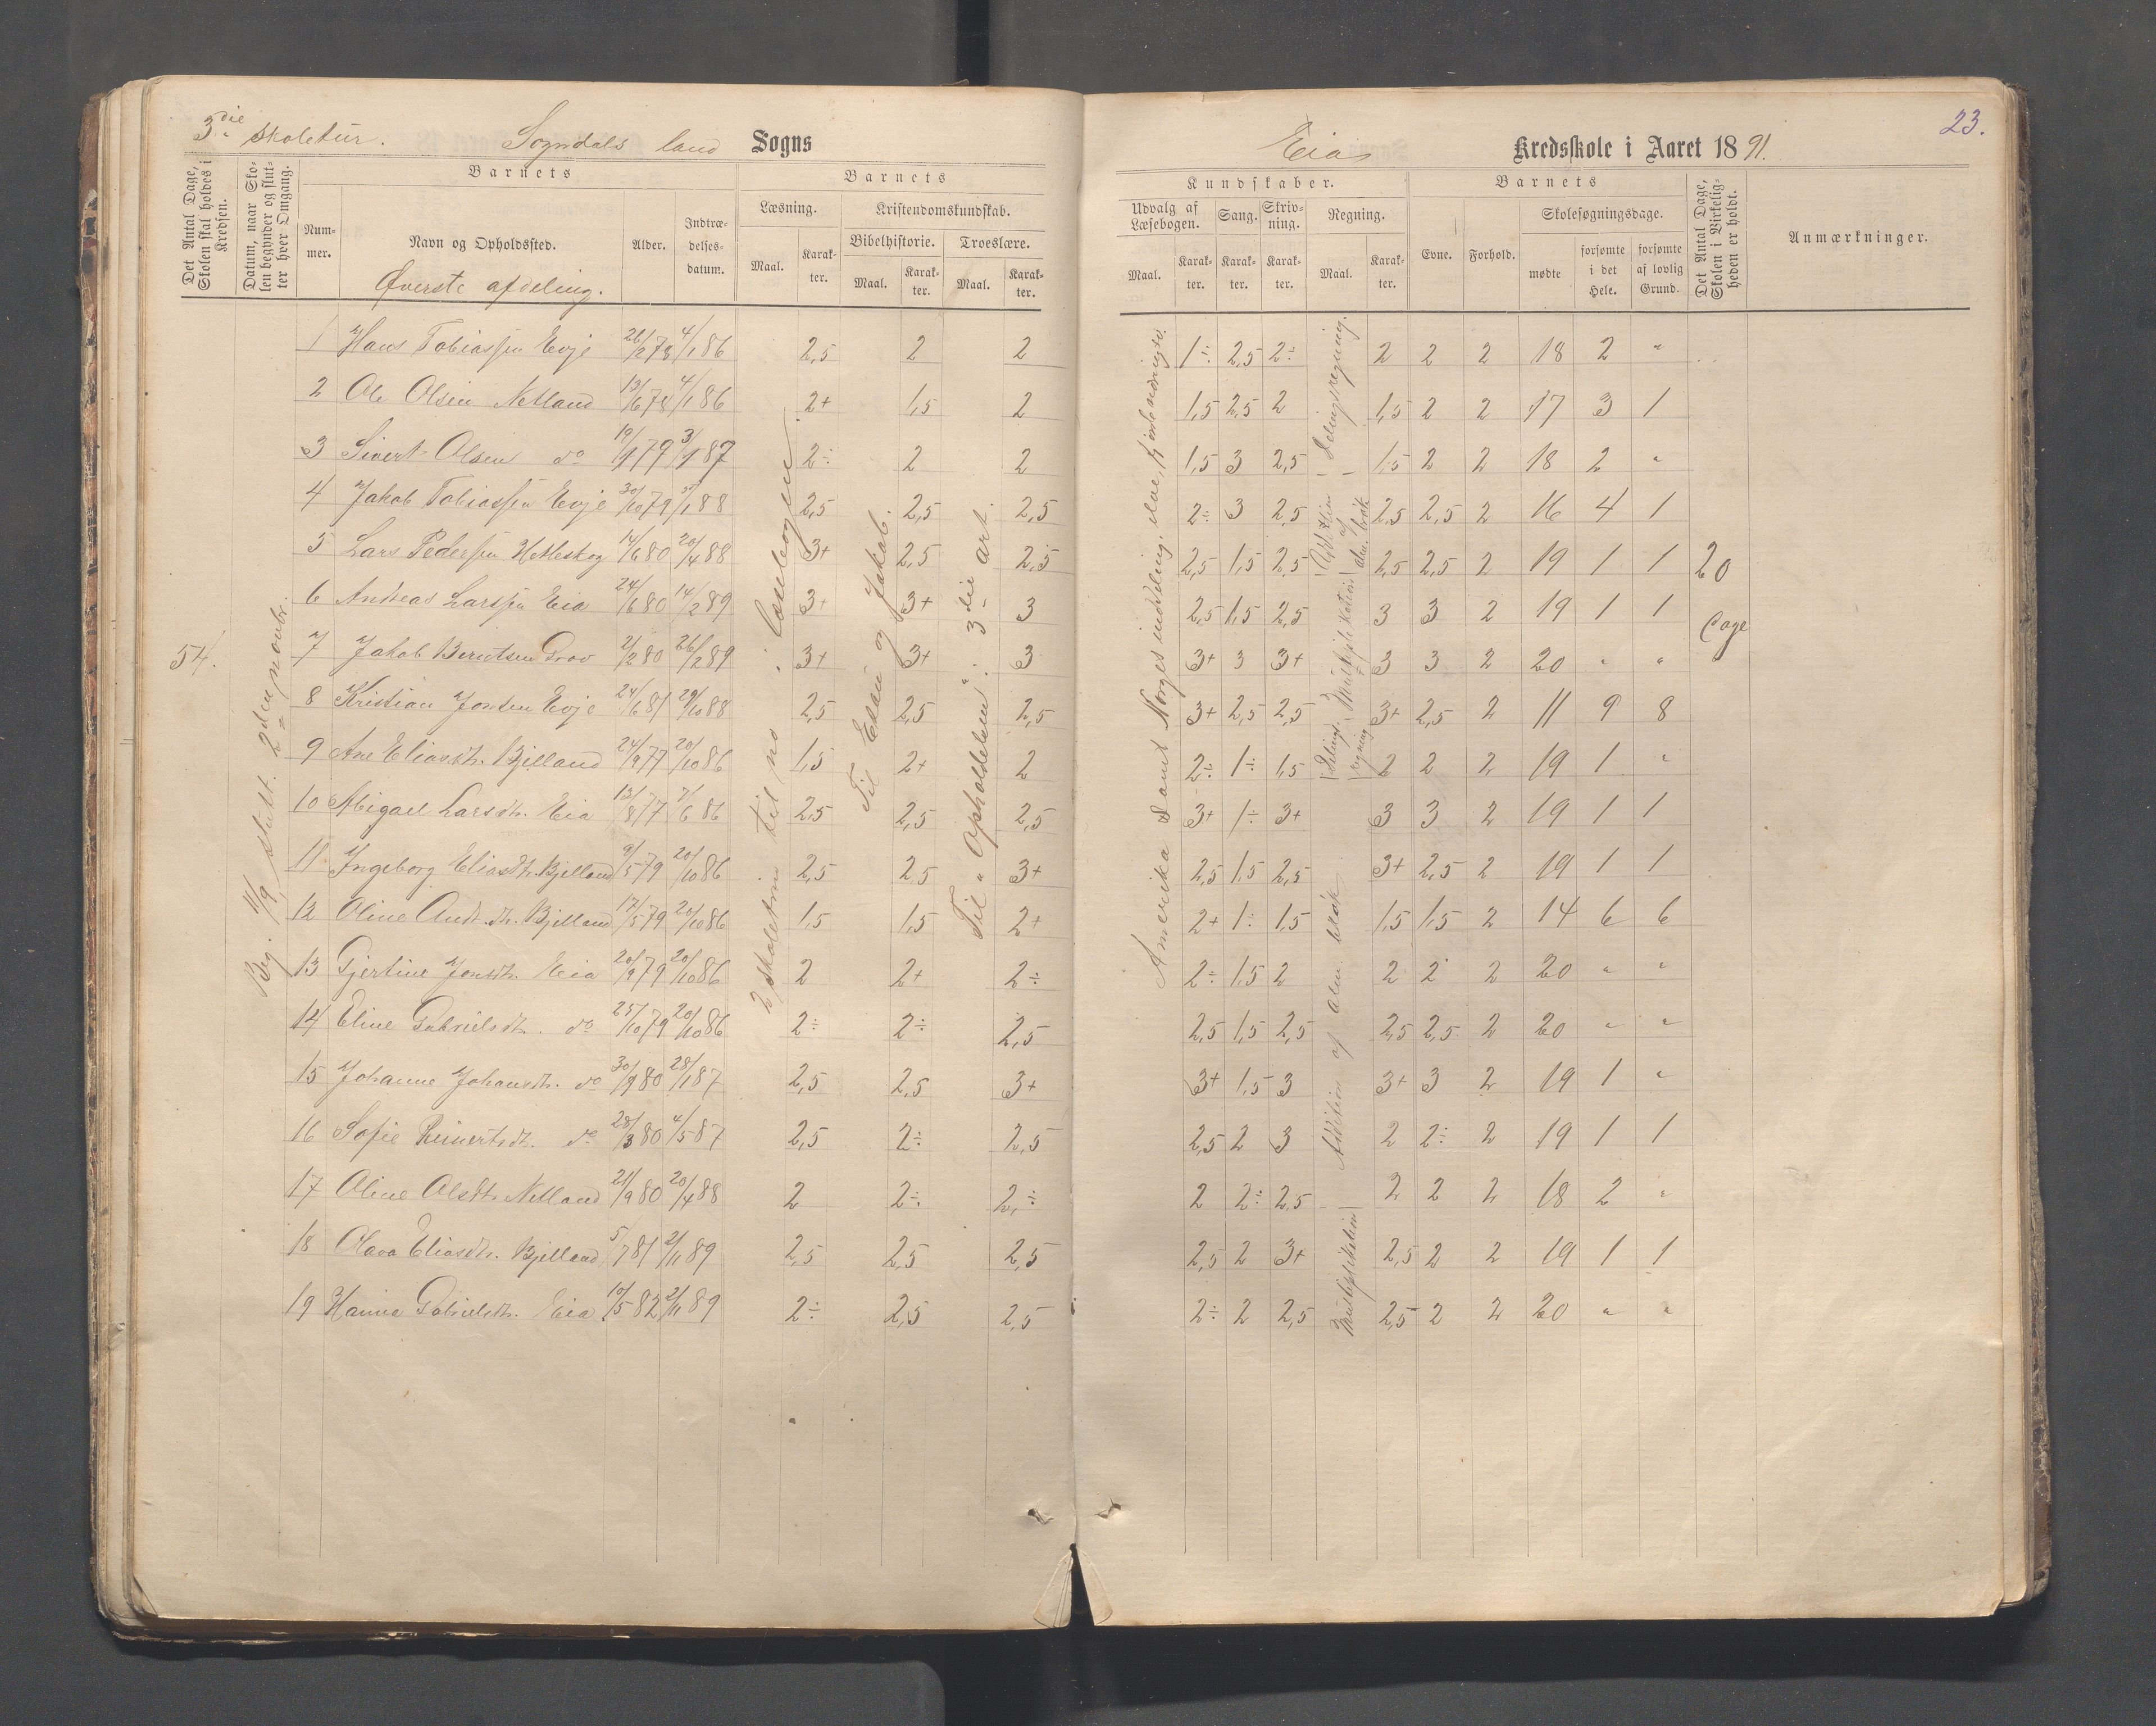 3die skoletur. Sogndals land Sogns
Eia Kredsskole i Aaret 1891.
23.
Det Antal Dage, Skolen skal holdes i Kredsen.
Datum, naar Skolen begynder og slutter hver Omgang.
Barnets
Nummer.
Navn og Opholdssted.
Alder.
Indtrædelsesdatum.
Barnets
Læsning.
Maal.
Karakter.
Kristendomskundskab.
Bibelhistorie.
Maal.
Karakter.
Troeslære.
Maal.
Karakter.
Kundskaber.
Udvalg af Læsebogen.
Maal.
Karakter.
Sang.
Karakter.
Skrivning.
Karakter.
Regning.
Maal.
Karakter.
Barnets
Evne.
Forhold.
Skolesøgningsdage.
mødte
forsømte i det Hele.
forsømte af lovlig Grund.
Det Antal Dage, Skolen i Virkeligheden er holdt.
Anmærkninger.
Øverste afdeling.
1 Hans Tobiassen Evje 26/12 78 4/1 86 2,5 2 2 1÷ 2,5 2÷ 2 2 2 18 2 "
2 Ole Olsen Netland 13/6 78 4/1 86 2+ 1,5 2 1,5 2,5 2 1,5 2 2 17 3 1
3 Sivert Olsen do 19/1 79 3/1 87 2÷ 2 2 1,5 3 2,5 1,5 2 2 18 2 "
4 Jakob Tobiassen Evje 30/10 79 /1 88 2,5 2,5 2,5 2÷ 3 2,5 2,5 2,5 2 16 4 1
5 Lars Pedersen Hetleskog 14/6 80 20/4 88 3+ 2,5 2,5 2,5 1,5 2,5 2,5 2,5 2 19 1 1
6 Andreas Larsen Eia 24/6 80 14/2 89 3+ 3+ 3 2,5 1,5 2,5 3 3 2 19 1 1
7 Jakob Berntsen Grov 2/2 80 26/2 89 3+ 3+ 3 3+ 3 3+ 3 3 2 20 " "
8 Kristian Jonsen Evje 24/6 81 29/10 88 2,5 2,5 2,5 3+ 2,5 2,5 3+ 2,5 2 11 9 8
9 Ane Eliasdt. Bjelland 24/9 77 20/10 86 1,5 2+ 2 2÷ 1÷ 1,5 2 2 2 19 1 "
10 Abigael Larsdt. Eia 13/8 77 7/6 86 2,5 2,5 2,5 3+ 1÷ 3+ 3 3 2 19 1 1
11 Ingeborg Eliasdt. Bjelland 9/5 79 20/10 86 2,5 2,5 3+ 2,5 1,5 2,5 3+ 2,5 2 19 1 1
12 Oline Andr.dt. Bjelland 17/5 79 20/10 86 1,5 1,5 2+ 2+ 1÷ 1,5 1,5 1,5 2 14 6 6
13 Gjertine Jonsdt. Eia 20/9 79 20/10 86 2 2+ 2÷ 2÷ 1,5 2 2 2 2 20 " "
14 Eline Gabrielsdt. do 25/10 79 20/10 86 2÷ 2÷ 2,5 2,5 1,5 2,5 2,5 2,5 2 20 " "
15 Johanne Johansdt. do 30/9 80 28/1 87 2,5 2,5 3+ 3+ 1,5 3 3+ 3 2 19 1 "
16 Sofie Reinertsdt. do 28/3 80 4/5 87 2,5 2÷ 2,5 2,5 2 3 2 2÷ 2 19 1 1
17 Oline Olsdt. Netland 21/9 80 20/4 88 2 2÷ 2÷ 2 2÷ 2,5 2 2 2 18 2 "
18 Olava Eliasdt. Bjelland 5/7 81 2/11 89 2,5 2,5 2,5 2,5 2 3+ 2,5 2 2 19 1 1
19 Hanna Gabrielsdt. Eia 10/5 82 2/11 89 2÷ 2,5 2,5 2÷ 2 2,5 2,5 2 2 20 " "
54.
Beg. 11/9, slutt. 2den novbr.
2 skoletrin til no i læsebogen.
Til Esau og Jakob.
Til "Opholdelsen" i 3die art.
Amerika samt Norges inddeling.
Delingsregning.
Addition af alm. brøk
Multiplikation
Delingsregning
Addition af alm. brøk
Multiplikation
20
Dage